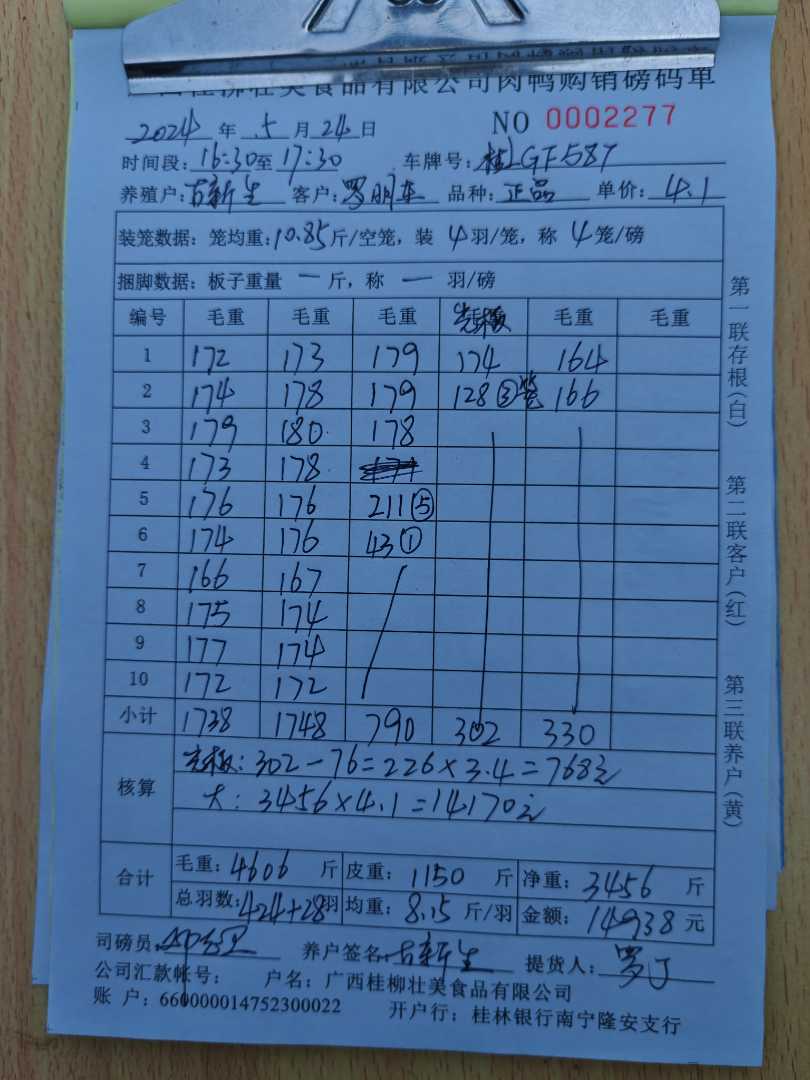 广西桂柳壮美食品有限公司肉鸭购销磅码单
2024 年 5 月 24 日 NO 0002277
时间段: 16:30 至 17:30 车牌号: 桂GF587
养殖户: 古新生 客户: 罗明车 品种: 正品 单价: 4.1
装笼数据: 笼均重: 10.85 斤/空笼, 装 4 羽/笼, 称 4 笼/磅
捆脚数据: 板子重量 一 斤, 称 一 羽/磅
编号 毛重 毛重 毛重 光板 毛重 毛重
1 172 173 179 174 164
2 174 178 179 128 ③笼 166
3 179 180 178
4 173 178
5 176 176 211 ⑤
6 174 176 43 ①
7 166 167
8 175 174
9 177 174
10 172 172
小计 1738 1748 790 302 330
核算 光板: 302-76=226×3.4=768元
大: 3456×4.1=14170元
合计 毛重: 4606 斤 皮重: 1150 斤 净重: 3456 斤
总羽数: 424+28羽 均重: 8.15 斤/羽 金额: 14938 元
司磅员: 养户签名: 古新生 提货人: 罗
公司汇款帐号: 户名: 广西桂柳壮美食品有限公司
账 户: 660000014752300022 开户行: 桂林银行南宁隆安支行
第一联存根(白)
第二联客户(红)
第三联养户(黄)